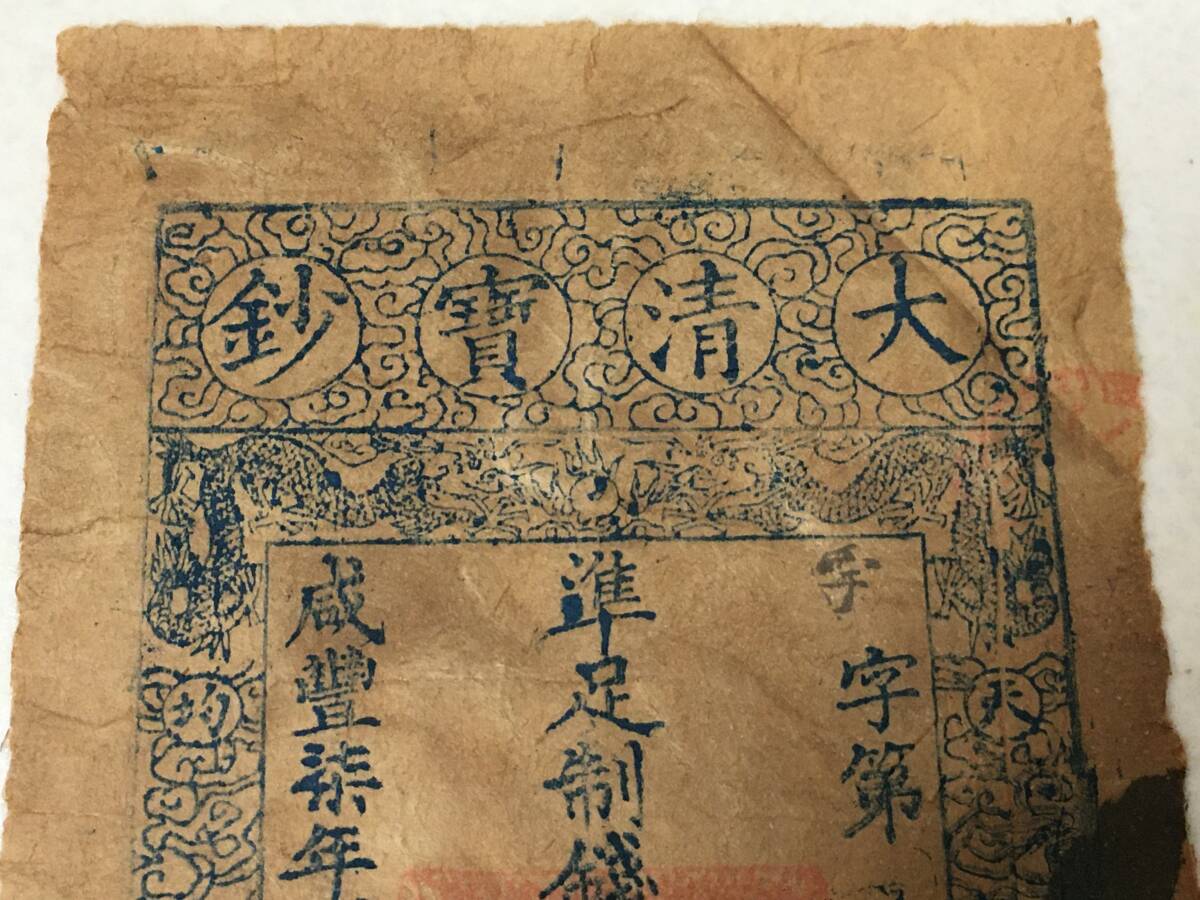 大清寶鈔
天
字第
準足制錢
咸豐柒年
均